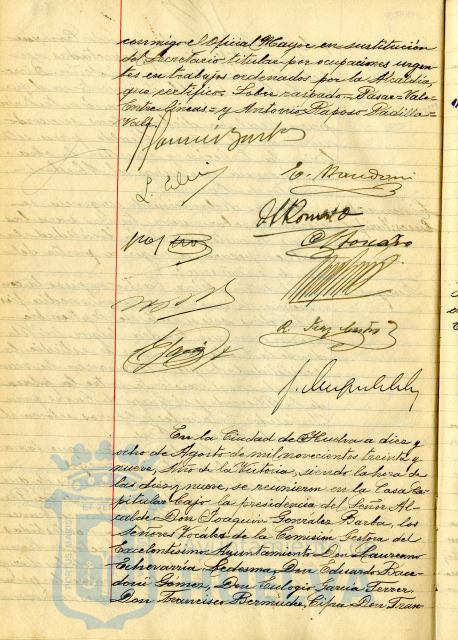 conmigo el Oficial Mayor en sustitución
del Secretario titular por ocupaciones urgen-
tes en trabajos ordenados por la Alcaldía,
que certifico = Sobre raspado = Pasar = Vale =
Entre líneas = y Antonio Raposo Padilla =
Vale
E. Mandoni
M Romero
En la Ciudad de Huelva a diez y
ocho de Agosto de mil novecientos treinta y
nueve, Año de la Victoria, siendo la hora de
las diez y nueve, se reunieron en la Casa Ca-
pitular bajo la presidencia del Señor Al-
calde Don Joaquín González Barba, los
Señores Vocales de la Comisión Gestora del
Excelentísimo Ayuntamiento Don Laureano
Echevarría Ledesma, Don Eduardo Bace-
doni Gómez, Don Eulogio García Ferrer,
Don Francisco Bermudez Cifra, Don Fran